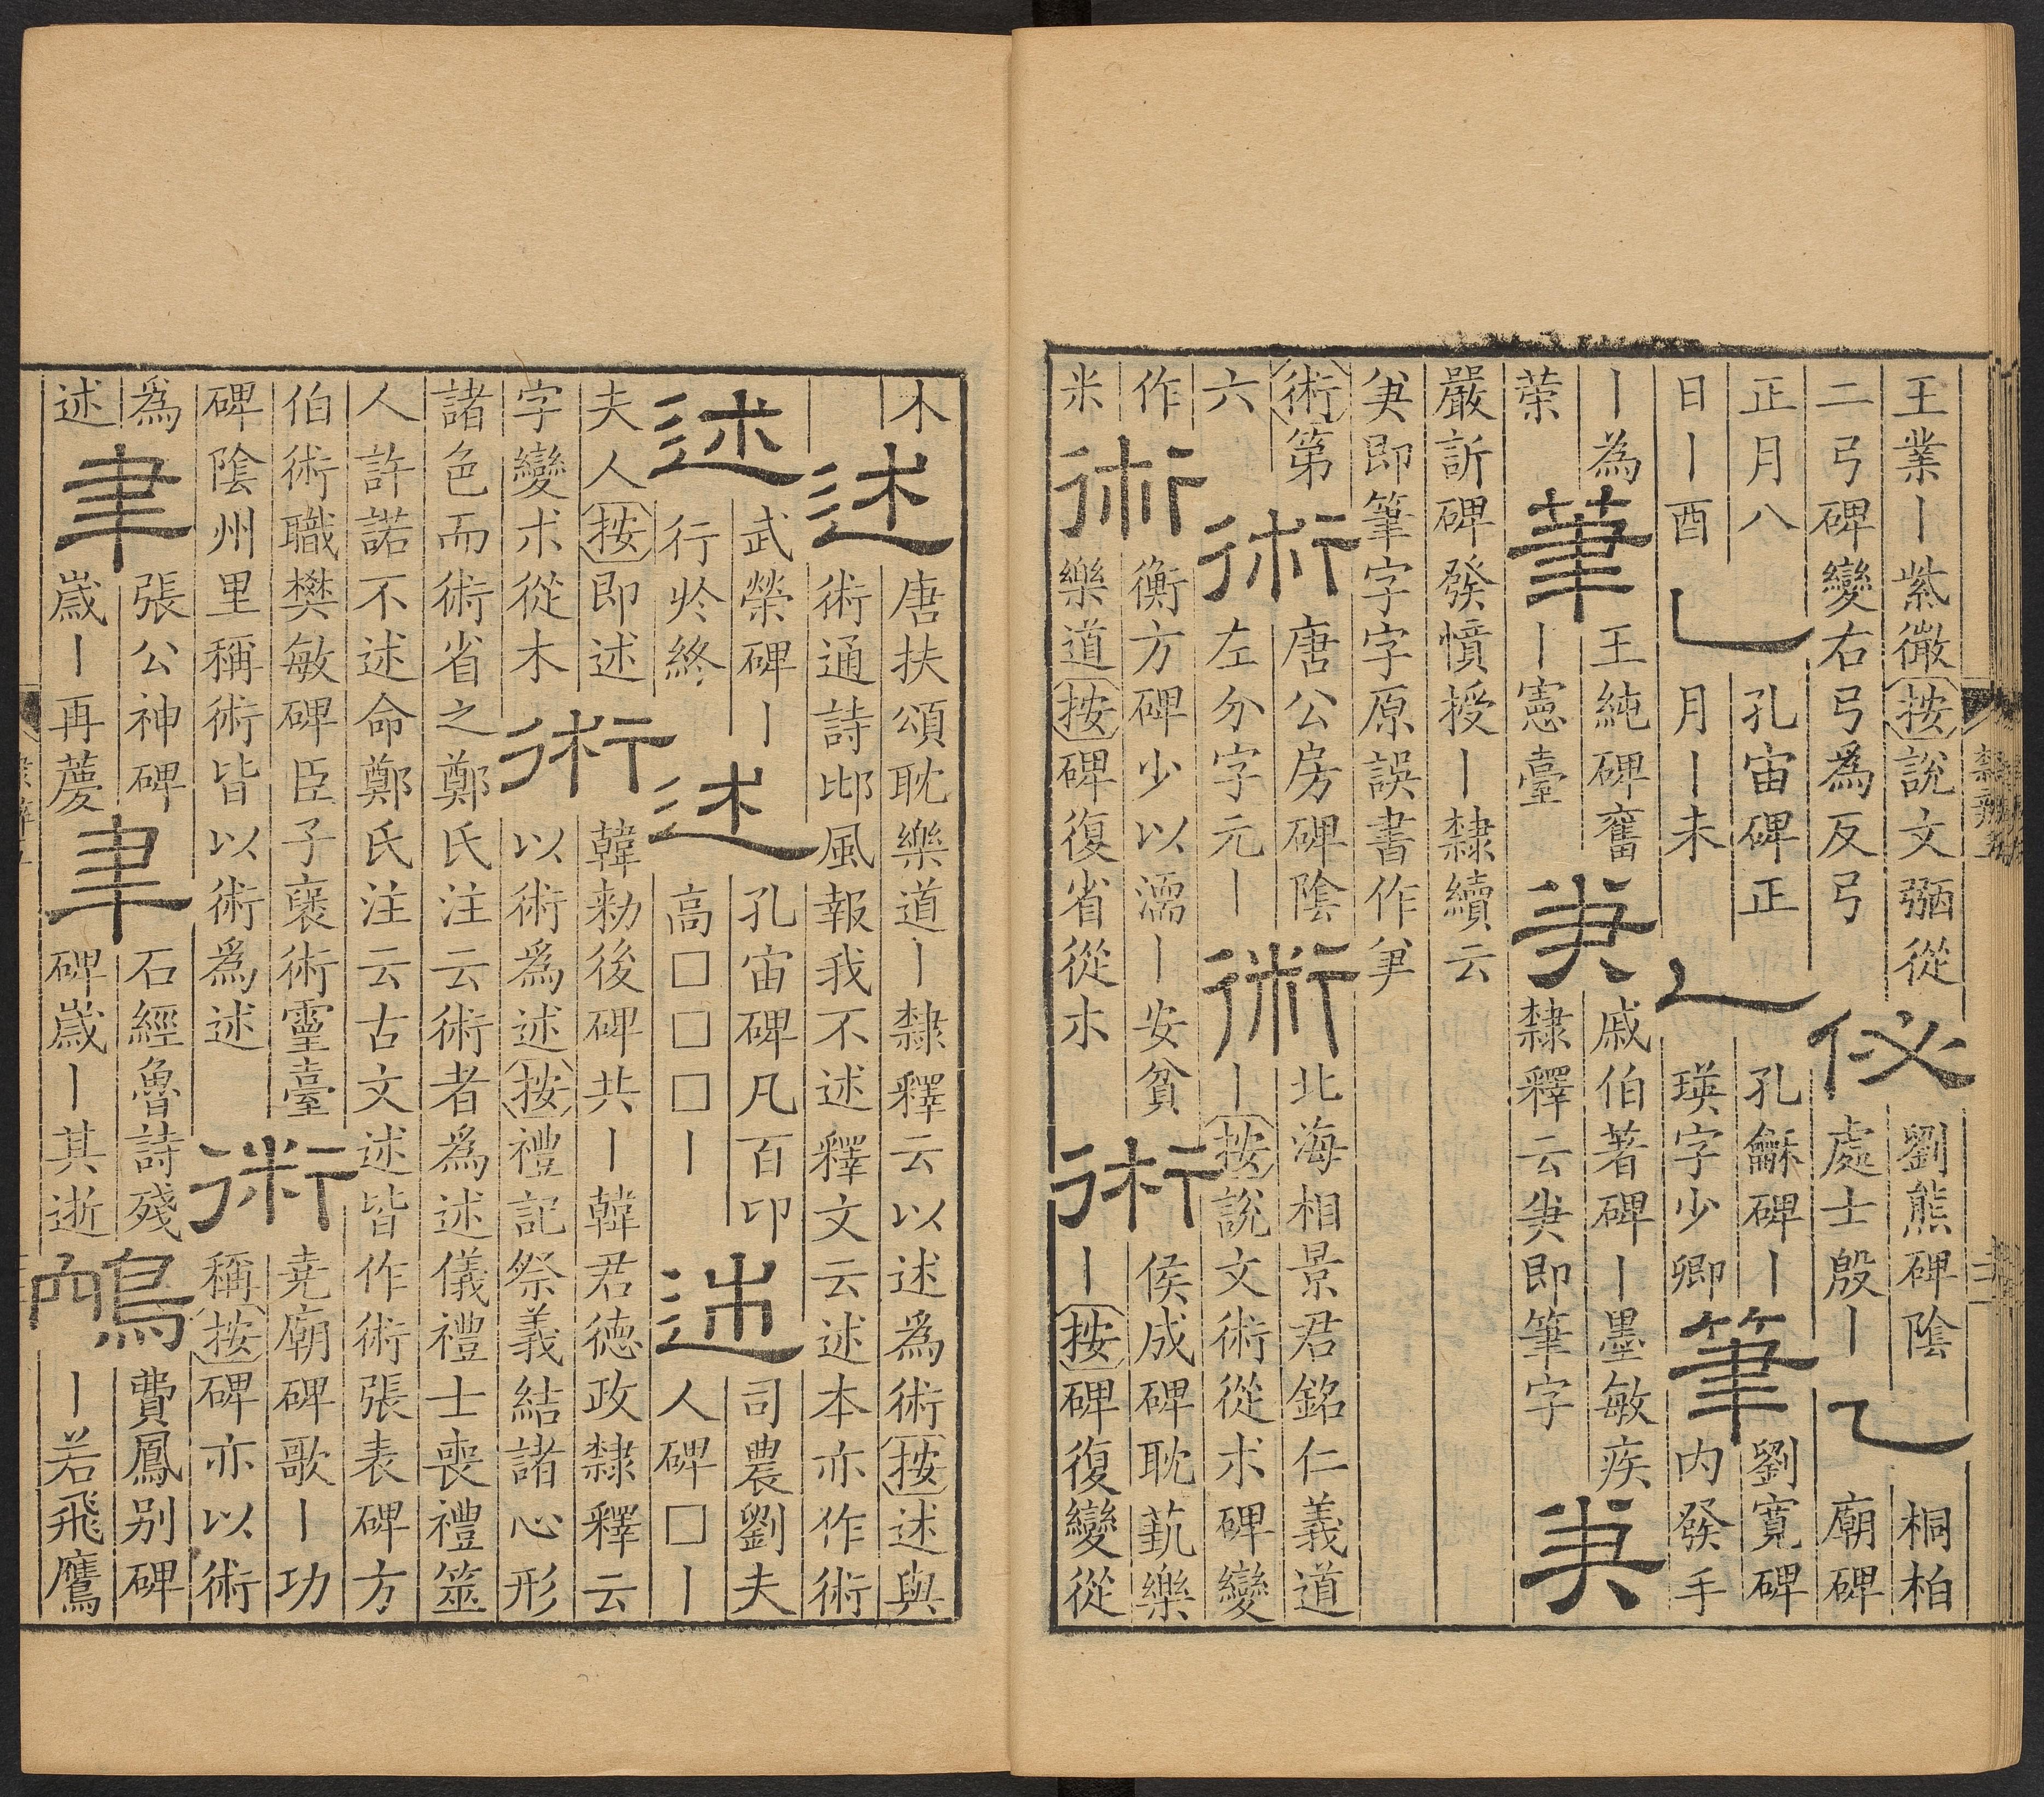 王業丨紫微按說文弼從
二弓碑變右弓為反弓
佖
劉熊碑陰
處士殷丨
乙
桐柏
廟碑
正月八
日丨酉
乙
孔宙碑正
月丨未
乙
孔龢碑丨
瑛字少卿
筆
劉寬碑
内發手
丨為
荣
筆
王純碑奮
丨憲臺
戚伯著碑丨墨敏疾
隸釋云即筆字
嚴訢碑發憤授丨隸續云
即筆字字原誤書作
術第
六
術
唐公房碑陰
左分字元丨
術
北海相景君銘仁義道
丨按說文術從朮碑變
作
米
術
衡方碑少以濡丨安貧
樂道按碑復省從木
術
侯成碑耽蓺樂
丨按碑復變從
木
述
唐扶頌耽樂道丨隸釋云以述為術按述與
術通詩邶風報我不述釋文云述本亦作術
述
武榮碑丨
行於終
述
孔宙碑凡百卬
高□□□丨
述
司農劉夫
人碑□丨
夫人按即述
字變朮從木
術
韓勑後碑共丨韓君德政隸釋云
以術為述按禮記祭義結諸心形
諸色而術省之鄭氏注云術者為述儀禮士喪禮筮
人許諾不述命鄭氏注云古文述皆作術張表碑方
伯術職樊敏碑臣子褒術靈臺
碑陰州里稱術皆以術為述
術
堯廟碑歌丨功
稱按碑亦以術
為
述
聿
張公神碑
歲丨再
聿
石經魯詩殘
碑歲丨其逝
鴥
費鳳別碑
丨若飛鷹